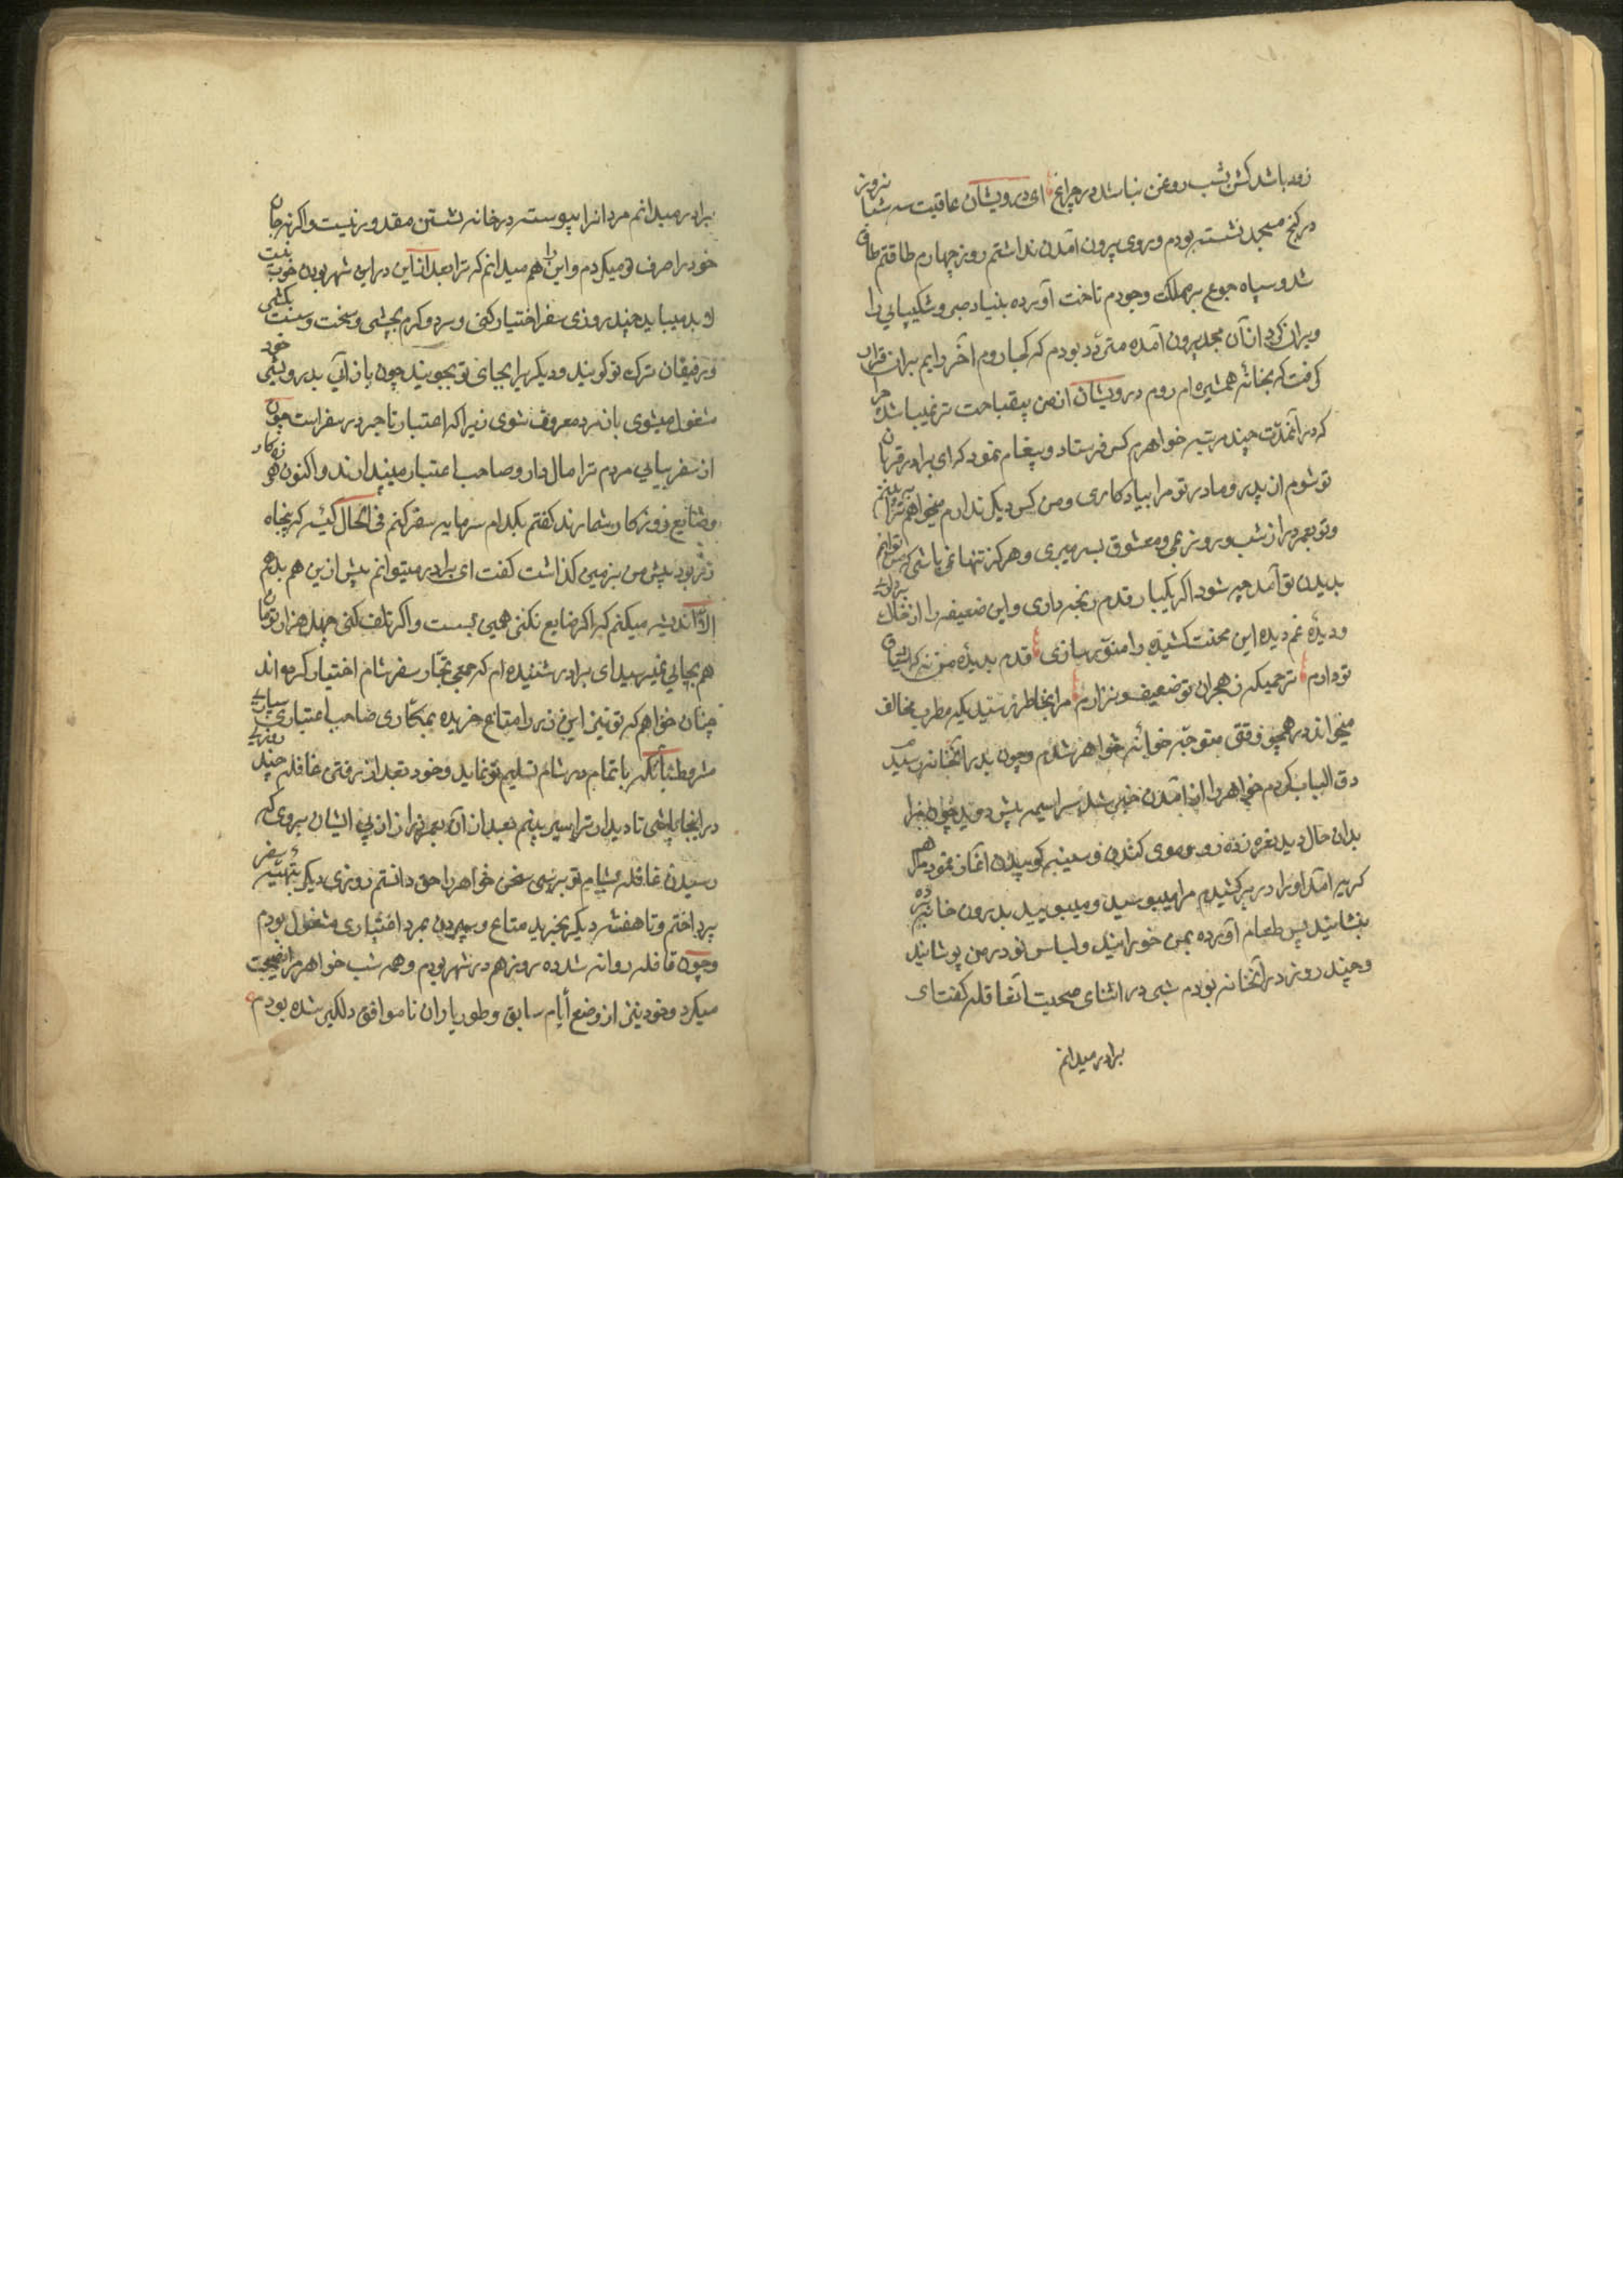 زود باشد کش بشب روغن نباشد در چراغ ای درویشان عاقبت سه شبانروز
در کنج مسجد نشسته بودم و روی بیرون آمدن نداشتم روز چهارم طاقتم طاق
شد و سپاه جوع بر مملکت وجودم تاخت آورده بنیاد صبر و شکیبایی را
ویران کرد از آن مسجد بیرون آمده متردد بودم که کجا روم آخر رایم بران قرار
گرفت که بخانه همشیره ام روم درویشان از من بیقباحت تر نمیباشد چرا
که در آنمدت چند مرتبه خواهرم کس فرستاد و پیغام نمود که ای برادر قربان
تو شوم از پدر و مادر تو مرا بیادکاری و من کس دیگر ندارم میخواهم ترا به بینم
و تو بعمر دراز شب و روز بمی و معشوق بسر میبری و هرگز تنها نمی باشی که من توانم
بدیدن تو آمد چه شود اگر یکبار قدم رنجه داری و این ضعیفه را از خاک برداری
و دیده غم دیده این محنت کشیده را منور سازی قدم بدیده من نه که اشتیاق
تو دارم ترحمیکه ز هجران تو ضعیف و نزارم مرا بخاطر رسید یکه مطرب مخالف
میخواند در همچو وقتی متوجه خوانه خواهر شدم و چون بدر آنخانه رسید
دق الباب کردم خواهر را از آمدن خبر شد سراسیمه پیش دوید چون مرا
بدان حال دید نعره زد و رو و موی کندن و سینه کوبیدن آغاز نمود مرا هم
گریه آمد او را در بر کشیدم مرا میبوسید و میبویید بدرون خانه برده
بنشانید پس طعام آورده بمن خورانید و لباس نو در من پوشانید
و چند روز در آنخانه بودم شبی در اثنای صحبت آنعاقله گفت ای
برادر میدانم
برادر میدانم مردانرا پیوسته در خانه نشستن مقدور نیست و اگرنه جان
خود را صرف تو میکردم و این را هم میدانم که ترا بعد از این در این شهر بودن خوب نیست
لابد میباید چند روزی سفر اختیار کنی و سرد و گرم بچشی و سخت و سست بکشی
و رفیقان ترک تو گویند و دیگر برا بجای تو بجویند چون باز آیی بدرویشی خود
مشغول میشوی بازمرد معروف شوی زیرا که اعتبار تاجر در سفر است چون
از سفر بیایی مردم ترا مال دار و صاحب اعتبار میندارند و اکنون هرزه کار
و ضایع روزکار شمارند گفتم بکدام سرمایه سفر کنم فی الحال کیسه که پنجاه
زر بود پیش من بزمین گذاشت گفت ای برادر میتوانم بیش ازین هم بدهم
الا اندیشه میکنم که اگر ضایع نکنی همین بست و اگر تلف کنی چهل هزار تومان
هم بجایی نمیرسد ای برادر شنیده ام که جمعی تجار سفر شام اختیار کرده اند
چنان خواهم که تو نیز این زر را متاع خریده بمکاری صاحب اعتباری بسپاری
مشروط بآنکه با تمام در شام تسلیم تو نماید و خود بعد از رفتن غافله چند روزی
در اینجا باشی تا دیدار ترا سیر بینم بعد از آن بعمر دراز از پی ایشان بروی که
رسیدن غافله بشام تو برسی سخن خواهر را حق دانستم روزی دیگر بتهیه سفر
پرداختم و تا هفته دیگر بخرید متاع و سپردن بمرد افشاری مشغول بودم
و چون قافله روانه شد ده روز هم در شهر بودم و همه شب خواهر مرا نصیحت
میکرد و خود نیز از وضع ایام سابق و طور یاران ناموافق دلگیر شده بودم